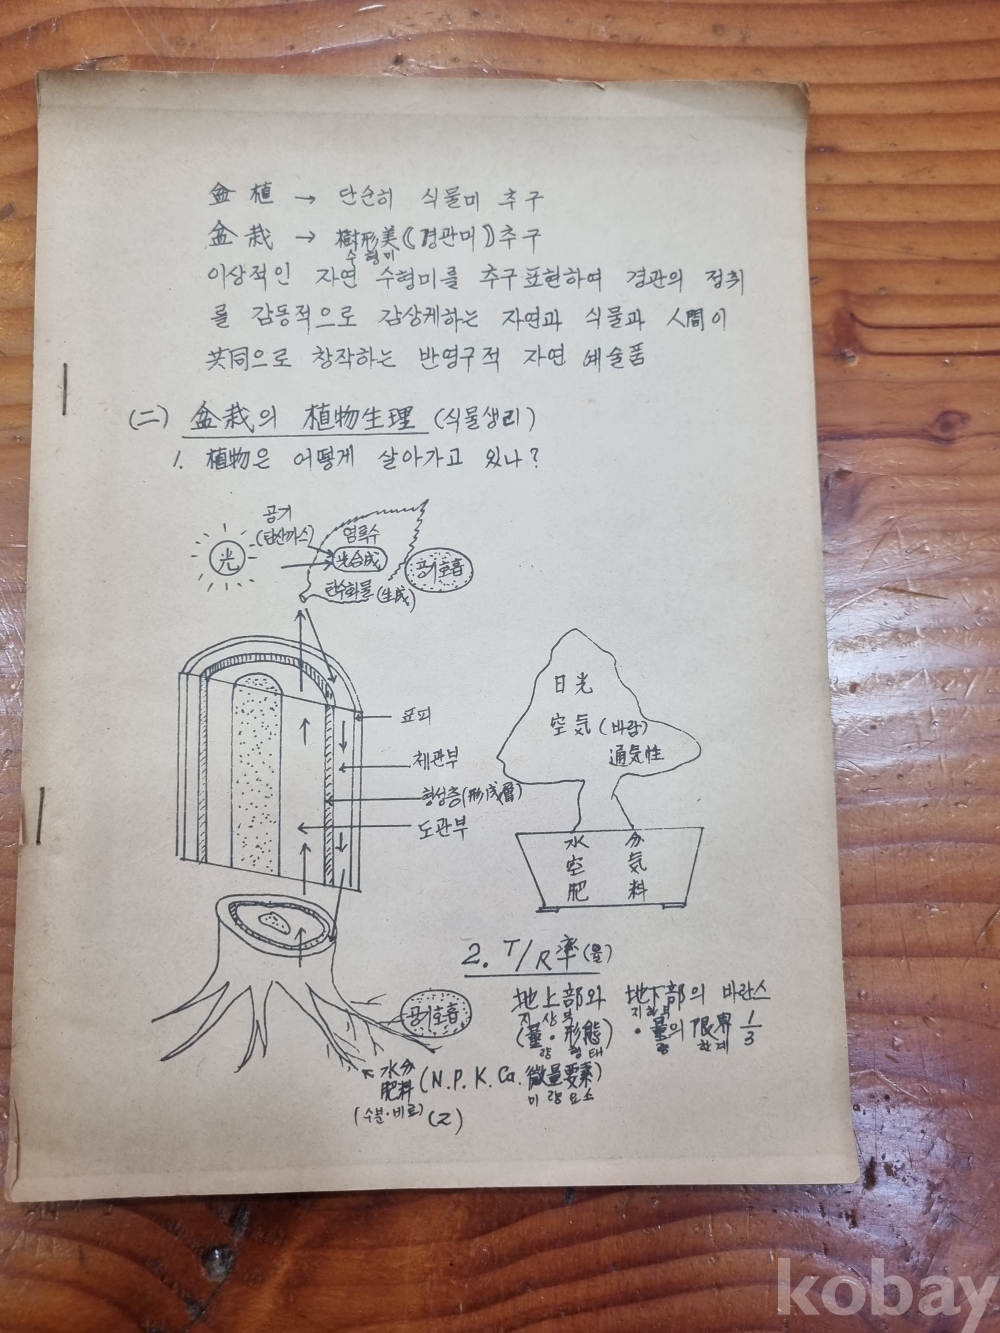 盆植 → 단순히 식물미 추구
盆栽 → 樹形美《경관미》추구
수형미
이상적인 자연 수형미를 추구표현하여 경관의 정취
를 감동적으로 감상케하는 자연과 식물과 人間이
共同으로 창작하는 반영구적 자연 예술품
(二) 盆栽의 植物生理 (식물생리)
1. 植物은 어떻게 살아가고 있나?
光
공기
(탄산까스)
엽록수
光合成
탄수화물(生成)
공기호흡
표피
체관부
형성층(形成層)
도관부
日光
空気(바람)
通気性
水分
空気
肥料
공기호흡
水分
肥料 (N.P.K.Ca.微量要素)
미량요소
(수분·비료)
(2)
2. T/R率(율)
地上部와 地下部의 바란스
지상부 지하부
(量·形態) ·量의 限界 1/3
량 형태 량 한계
kobay